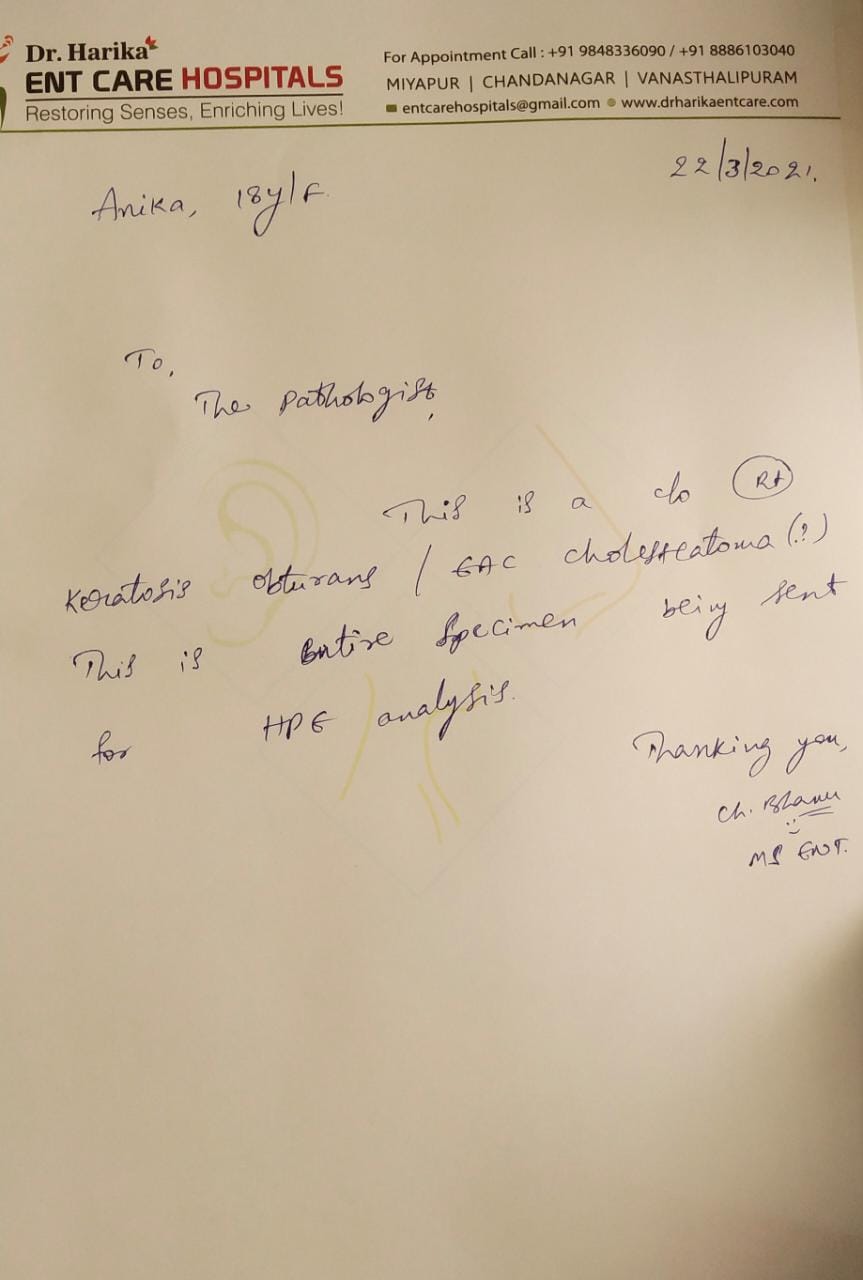 Dr. Harika
ENT CARE HOSPITALS
Restoring Senses, Enriching Lives!
For Appointment Call : +91 9848336090 / +91 8886103040
MIYAPUR | CHANDANAGAR | VANASTHALIPURAM
entcarehospitals@gmail.com www.drharikaentcare.com
22/3/2021.
Anika, 18y/F.
To,
The Pathologist,
This is a c/o Rt
Keratosis obturans / EAC cholesteatoma (?)
This is Entire Specimen being sent
for HPE analysis.
Thanking you,
Ch. Bhanu
MS ENT.